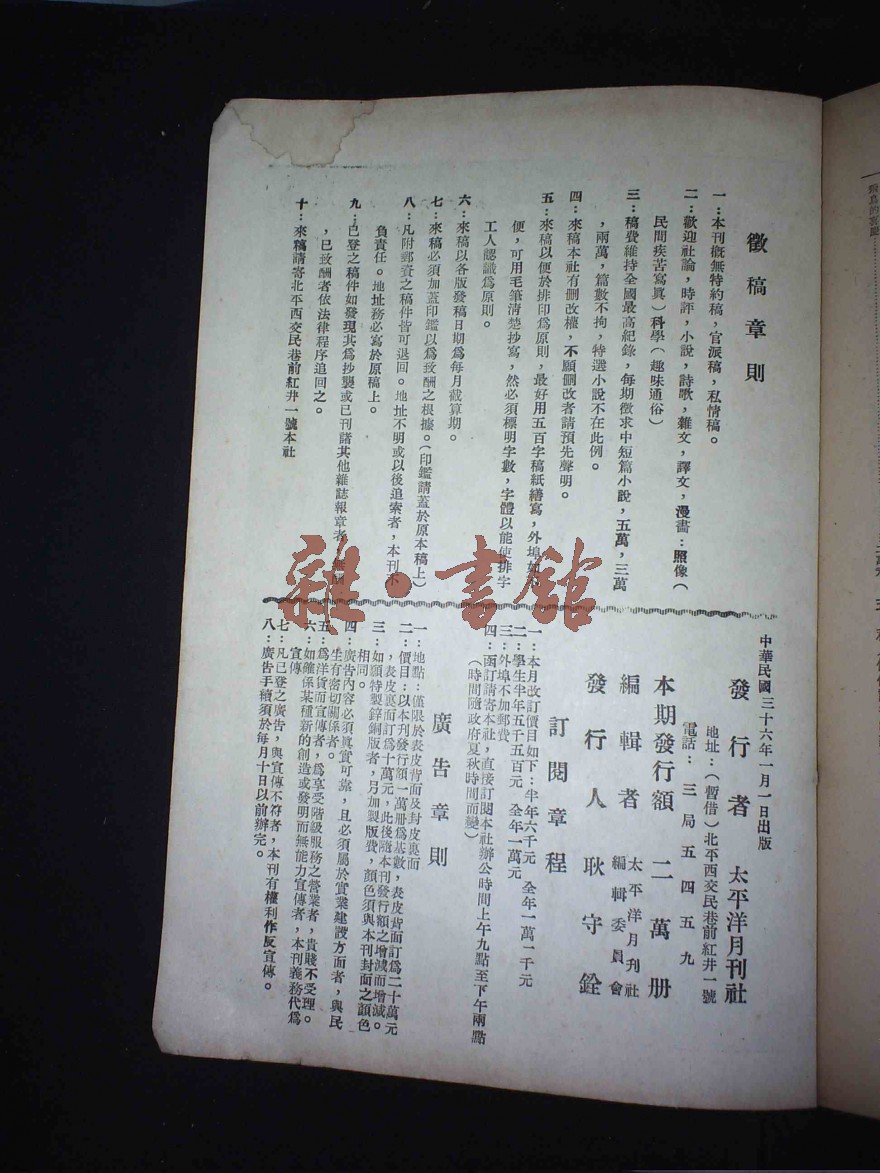 徵稿章則
一：本刊概無特約稿，官派稿，私情稿。
二：歡迎社論，時評，小說，詩歌，雜文，譯文，漫畫：照像（
民間疾苦寫眞）科學（趣味通俗）
三：稿費維持全國最高紀錄，每期徵求中短篇小說，五萬，三萬
，兩萬，篇數不拘，特選小說不在此例。
四：來稿本社有刪改權，不願刪改者請預先聲明。
五：來稿以便於排印爲原則，最好用五百字稿紙繕寫，外埠如
便，可用毛筆清楚抄寫，然必須標明字數，字體以能使排字
工人認識爲原則。
六：來稿以各版發稿日期爲每月截算期。
七：來稿必須加蓋印鑑以爲致酬之根據。（印鑑請蓋於原本稿上）
八：凡附郵資之稿件皆可退回。地址不明或以後追索者，本刊不
負責任。地址務必寫於原稿上。
九：已登之稿件如發現其爲抄襲或已刊諸其他雜誌報章者，
，已致酬者依法律程序追回之。
十：來稿請寄北平西交民巷前紅井一號本社
中華民國三十六年一月一日出版
發行者 太平洋月刊社
地址：（暫借）北平西交民巷前紅井一號
電話：三局五四五九
本期發行額 二萬册
編輯者 太平洋月刊社
編輯委員會
發行人 耿守銓
訂閱章程
一：本月改訂價目如下：半年六千元 全年一萬一千元
二：學生半年五千五百元 全年一萬元
三：外埠不加郵費
四：函訂請寄本社，直接訂閱本社辦公時間上午九點至下午兩點
（時間隨政府夏秋時間而變）
廣告章則
一：地點：僅限於表皮背面及封皮裏面
二：價目：以本刊發行額一萬册爲基數，表皮背面訂爲二十萬元
，表皮裏面訂爲十萬元，此後隨本刊發行額之增減而增減。
三：如願特製鋅銅版者，另加製版費，顏色須與本刊封面之顏色
相同。
四：廣告內容必須眞實可靠，且必須屬於實業建設方面者，與民
生有密切關係者。
五：爲洋貨而宣傳者，爲享受階級服務之營業者，貴賤不受理。
六：如確係某種新的創造或發明而無能力宣傳者，本刊義務代爲
宣傳
七：凡已登之廣告，與宣傳不符者，本刊有權利作反宣傳。
八：廣告手續須於每月十日以前辦完。
雜·書館